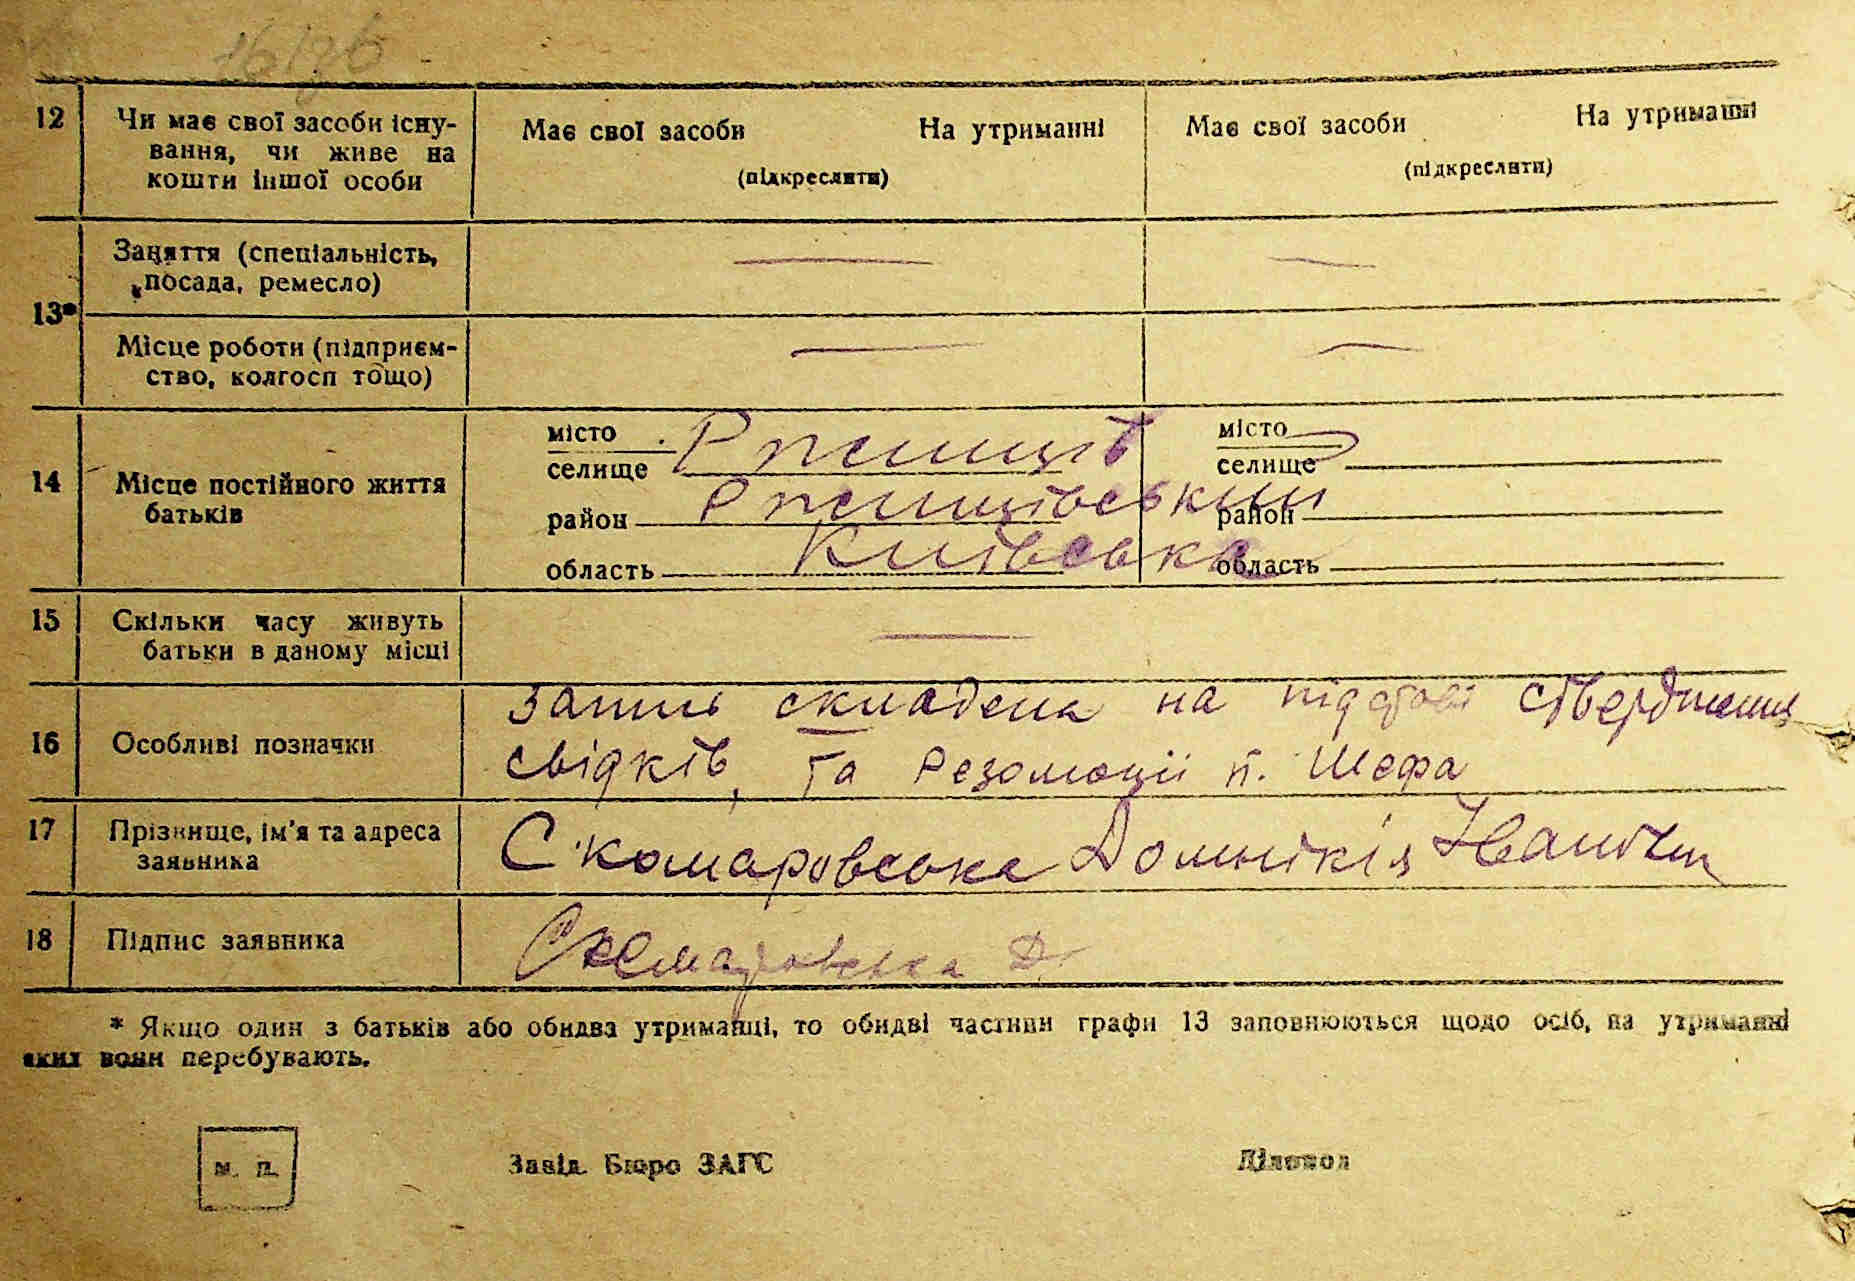 12 Чи має свої засоби існу-
вання, чи живе на
кошти іншої особи
Має свої засоби На утриманні
(підкреслити)
Має свої засоби На утриманні
(підкреслити)
13*
Заняття (спеціальність,
посада, ремесло)
Місце роботи (підприєм-
ство, колгосп тощо)
14 Місце постійного життя
батьків
місто
селище Ржищів
район Ржищівський
область Київська
місто
селище
район
область
15 Скільки часу живуть
батьки в даному місці
16 Особливі позначки
Запись складена на підставі ствердження
свідків, та Резолюції п. Шефа
17 Прізвище, ім'я та адреса
заявника
Скомаровська Домнікія Іванівна
18 Підпис заявника
Скомаровська Д.
* Якщо один з батьків або обидва утриманці, то обидві частини графи 13 заповнюються щодо осіб, на утриманні
яких вони перебувають.
м. п.
Завід. Бюро ЗАГС
Діловод